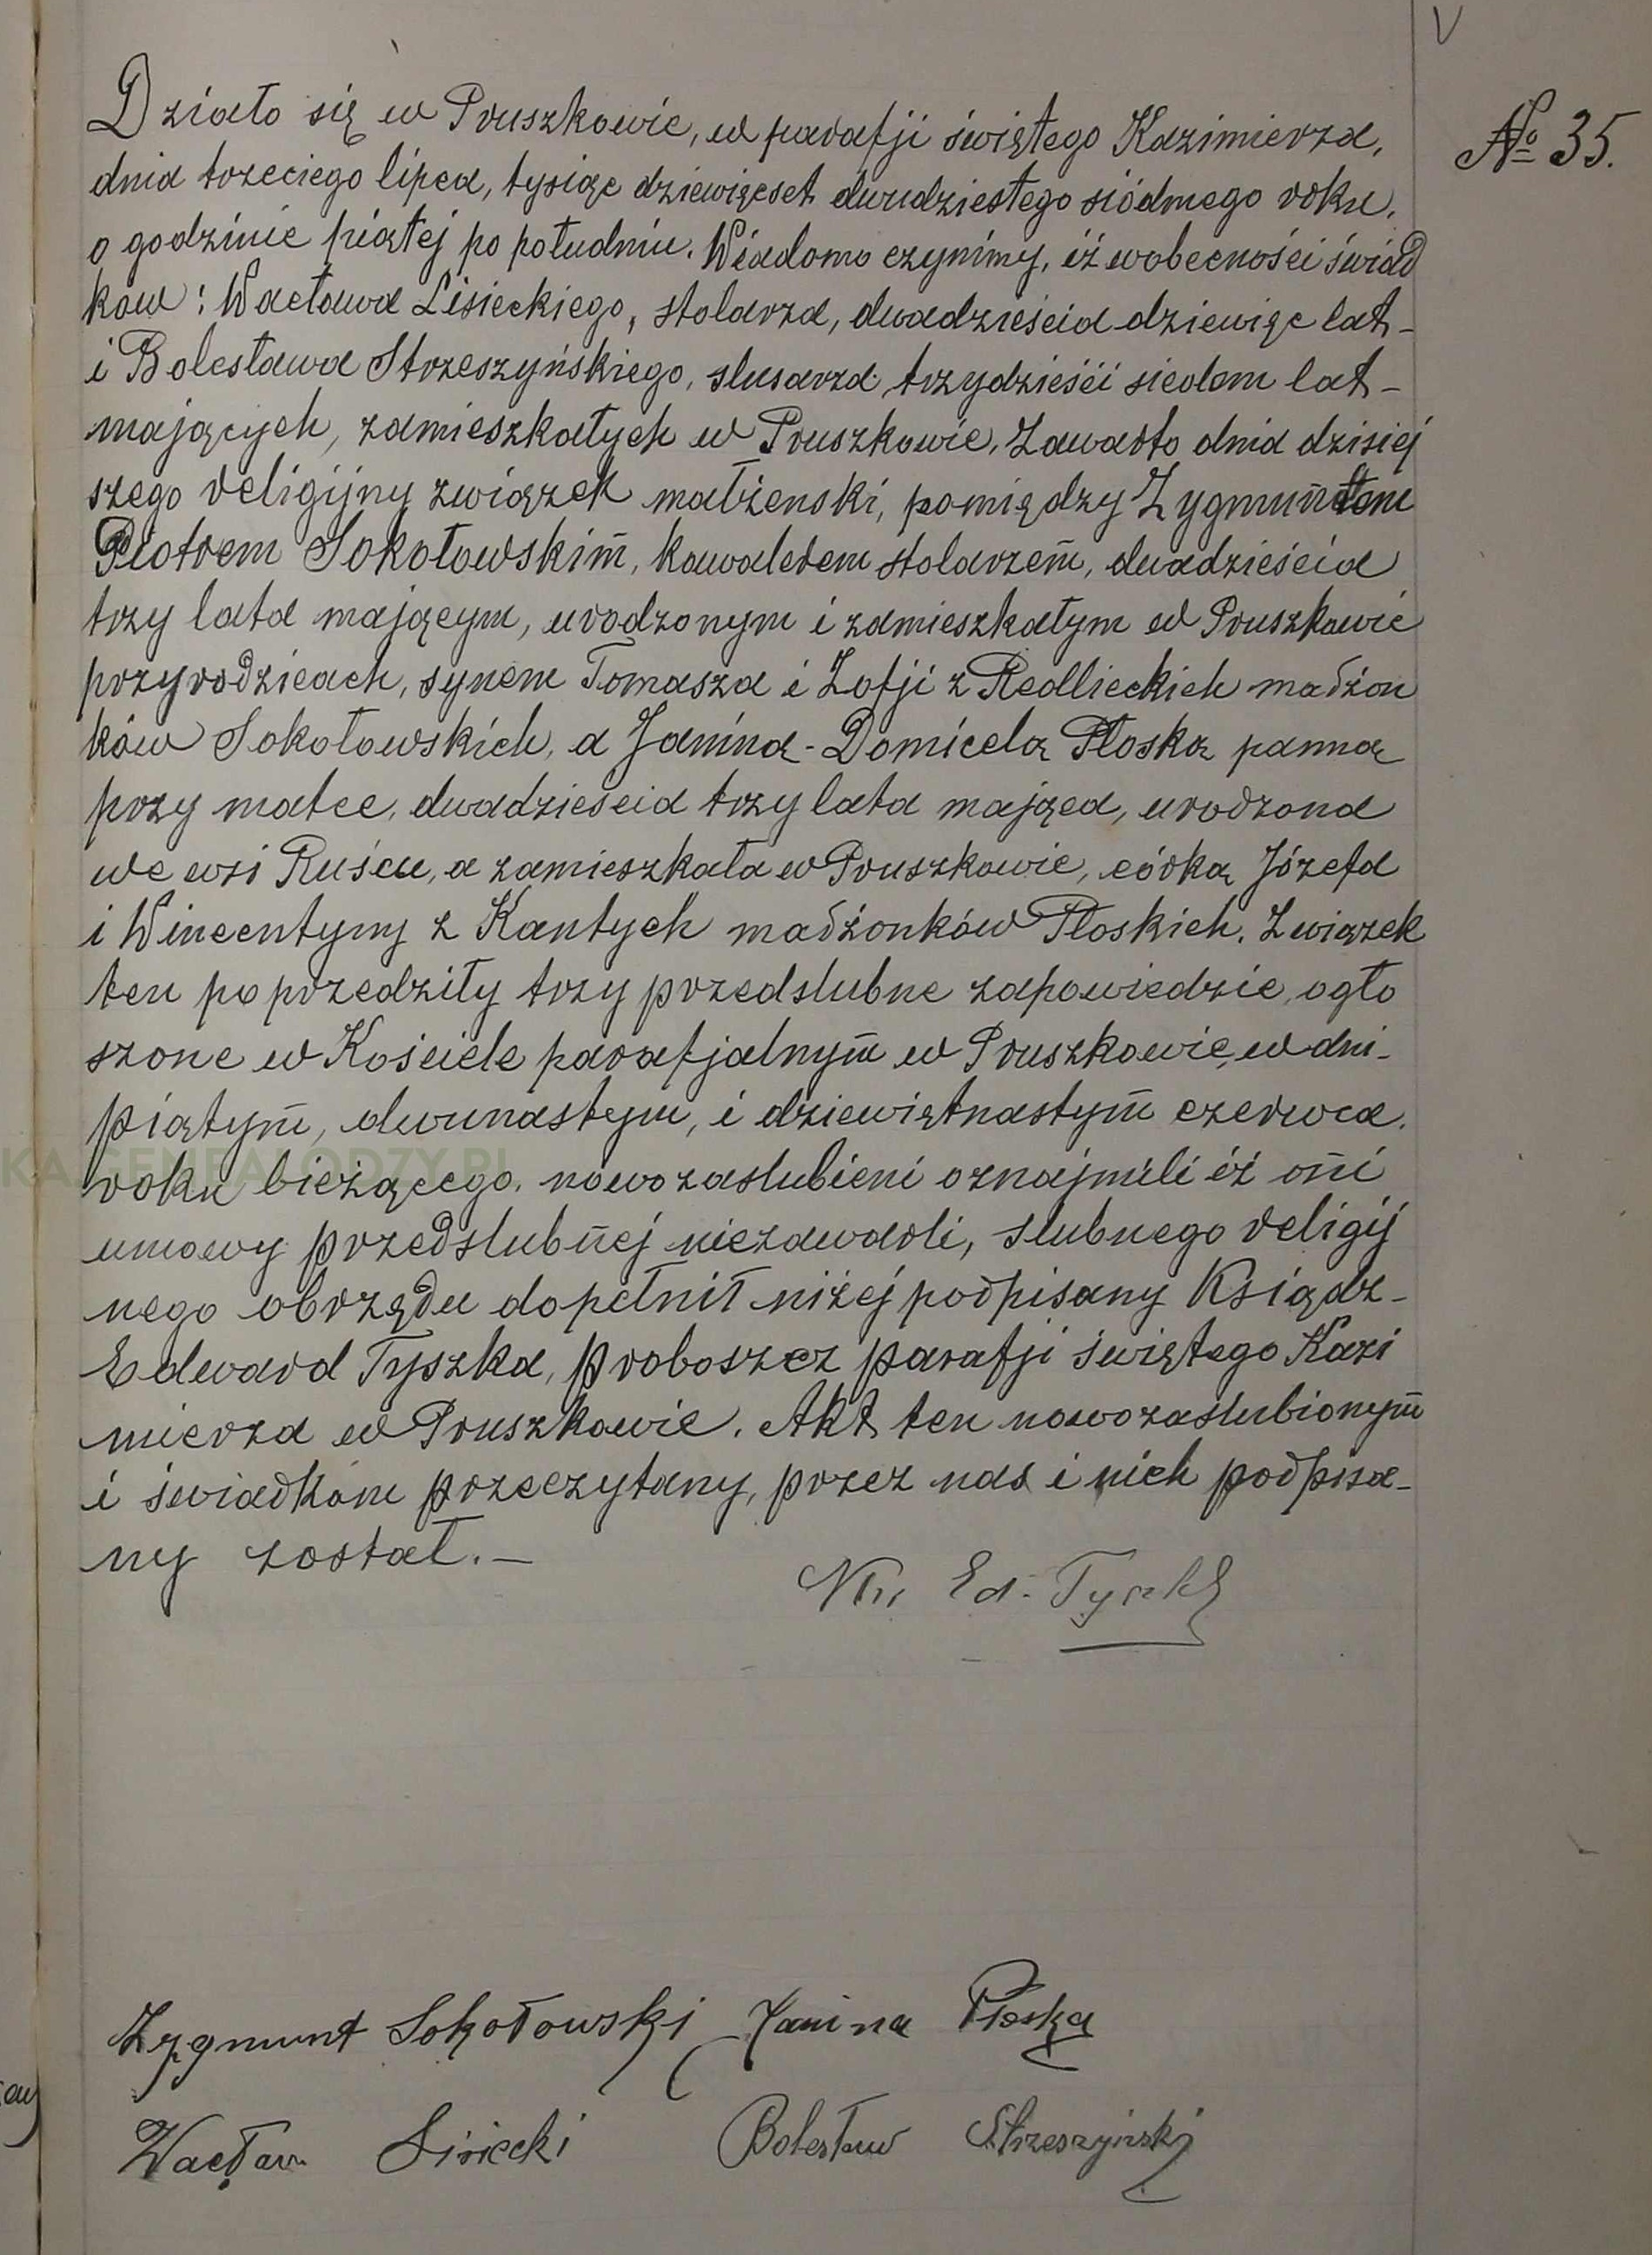 V
№ 35.
Działo się w Pruszkowie, w parafji świętego Kazimierza,
dnia trzeciego lipca, tysiąc dziewięćset dwudziestego siódmego roku,
o godzinie piątej po południu. Wiadomo czynimy, iż wobecności świad
ków: Wacława Lisieckiego, stolarza, dwadzieścia dziewięć lat –
i Bolesława Strzeszyńskiego, slusarza trzydzieści siedem lat –
mających, zamieszkałych w Pruszkowie, Zawarto dnia dzisiej
szego religijny związek małżenski, pomiędzy Zygmuntem
Piotrem Sokołowskim, kawalerem stolarzem, dwadzieścia
trzy lata mającym, urodzonym i zamieszkałym w Pruszkowie
przyrodzicach, synem Tomasza i Zofji z Redlickich madżon
ków Sokołowskich, a Janiną-Domicelą Płoską panną
przy matce, dwadzieścia trzy lata mająca, urodzona
we wsi Ruścu, a zamieszkała w Pruszkowie, córką Józefa
i Wincentyny z Kantych madżonków Płoskich. Związek
ten poprzedziły trzy przedslubne zapowiedzie, ogło
szone w Kościele parafjalnym w Pruszkowie, w dni –
piątym, dwunastym, i dziewiętnastym czerwca.
roku bieżącego. nowozaslubieni oznajmili iż oni
umowy przedslubnej niezawarli, slubnego religij
nego obrzędu dopełnił niżej podpisany Ksiądz –
Edward Tyszka, proboszcz parafji świętego Kazi
mierza w Pruszkowie. Akt ten nowozaslubionym
i świadkom przeczytany, przez nas i nich podpisa –
ny został. –
Ks. Ed. Tyszka
Zygmunt Sokołowski Janina Płoska
Wacław Lisiecki Bolesław Strzeszyński
KA.GENEALODZY.PL